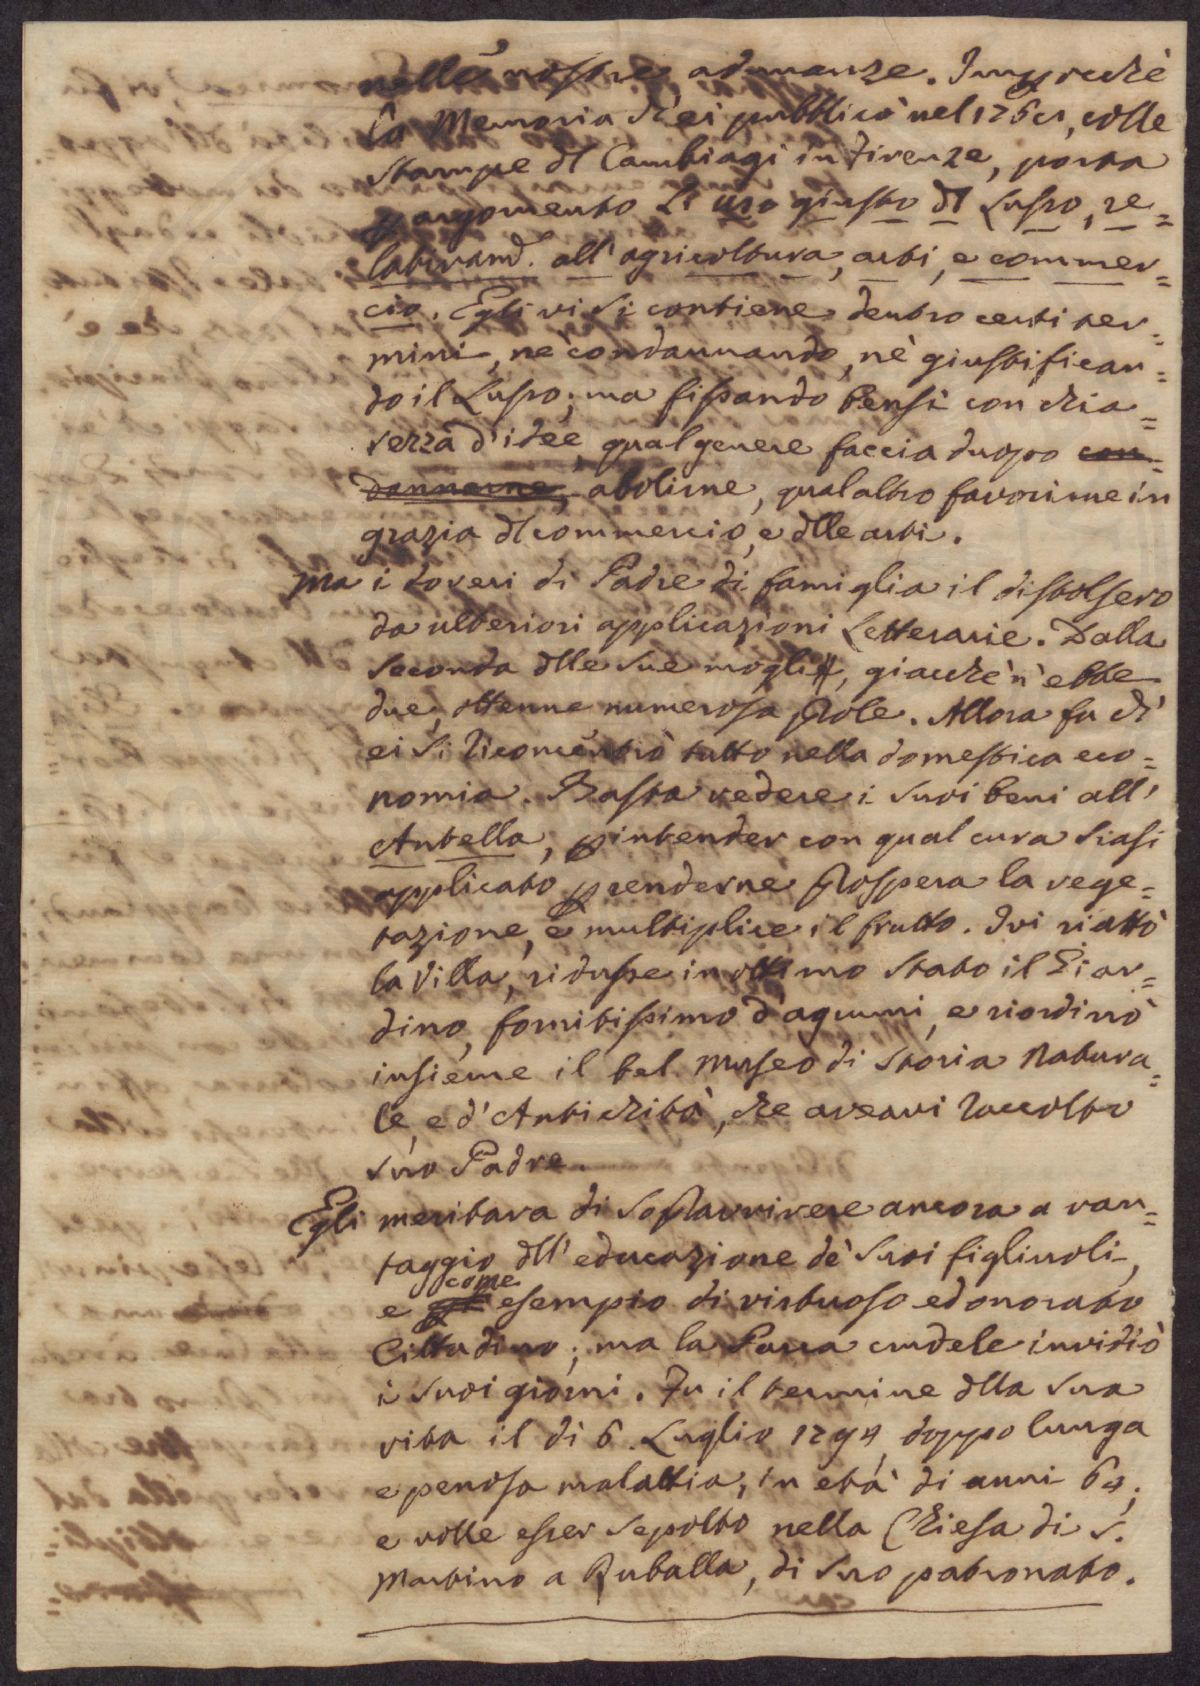 nelle nostre adunanze. Imperochè
la Memoria ch'ei pubblicò nel 1764, colle
stampe dl Cambiagi in Firenze, porta
p argomento L'uso giusto dl Lusso, re=
lativamte. all'agricoltura, arti, e commer=
cio. Egli vi si contiene dentro certi ter=
mini, nè condannando, nè giustifican=
do il Lusso; ma fissando bensì con chia=
rezza d'idee, qual genere faccia duopo con=
dannarne, abolirne, qual altro favorirne in
grazia dl commercio, e dlle arti.
Ma i doveri di Padre di famiglia il distolsero
da ulteriori applicazioni Letterarie. Dalla
seconda dlle sue mogli, giacchè n'ebbe
due, ottenne numerosa prole. Allora fu ch'
ei si riconcentrò tutto nella domestica eco=
nomia. Basta vedere i suoi beni all'
Antella, p intender con qual cura siasi
applicato p renderne prospera la vege=
tazione, e multiplice il frutto. Ivi riattò
la Villa, ridusse in ottimo stato il Giar=
dino, fornitissimo d'agrumi, e riordinò
insieme il bel Museo di Storia Natura=
le, e d'Antichità, che aveavi raccolto
suo Padre.
Egli meritava di sopravvivere ancora a van=
taggio dll'educazione de' suoi figliuoli,
e come esempio di virtuoso ed onorato
Cittadino; ma la Parca crudele invidiò
i suoi giorni. Fu il termine dlla sua
vita il dì 6. Luglio 1794, doppo lunga
e penosa malattia, in età di anni 64;
e volle esser sepolto nella Chiesa di S.
Martino a Ruballa, di suo patronato.